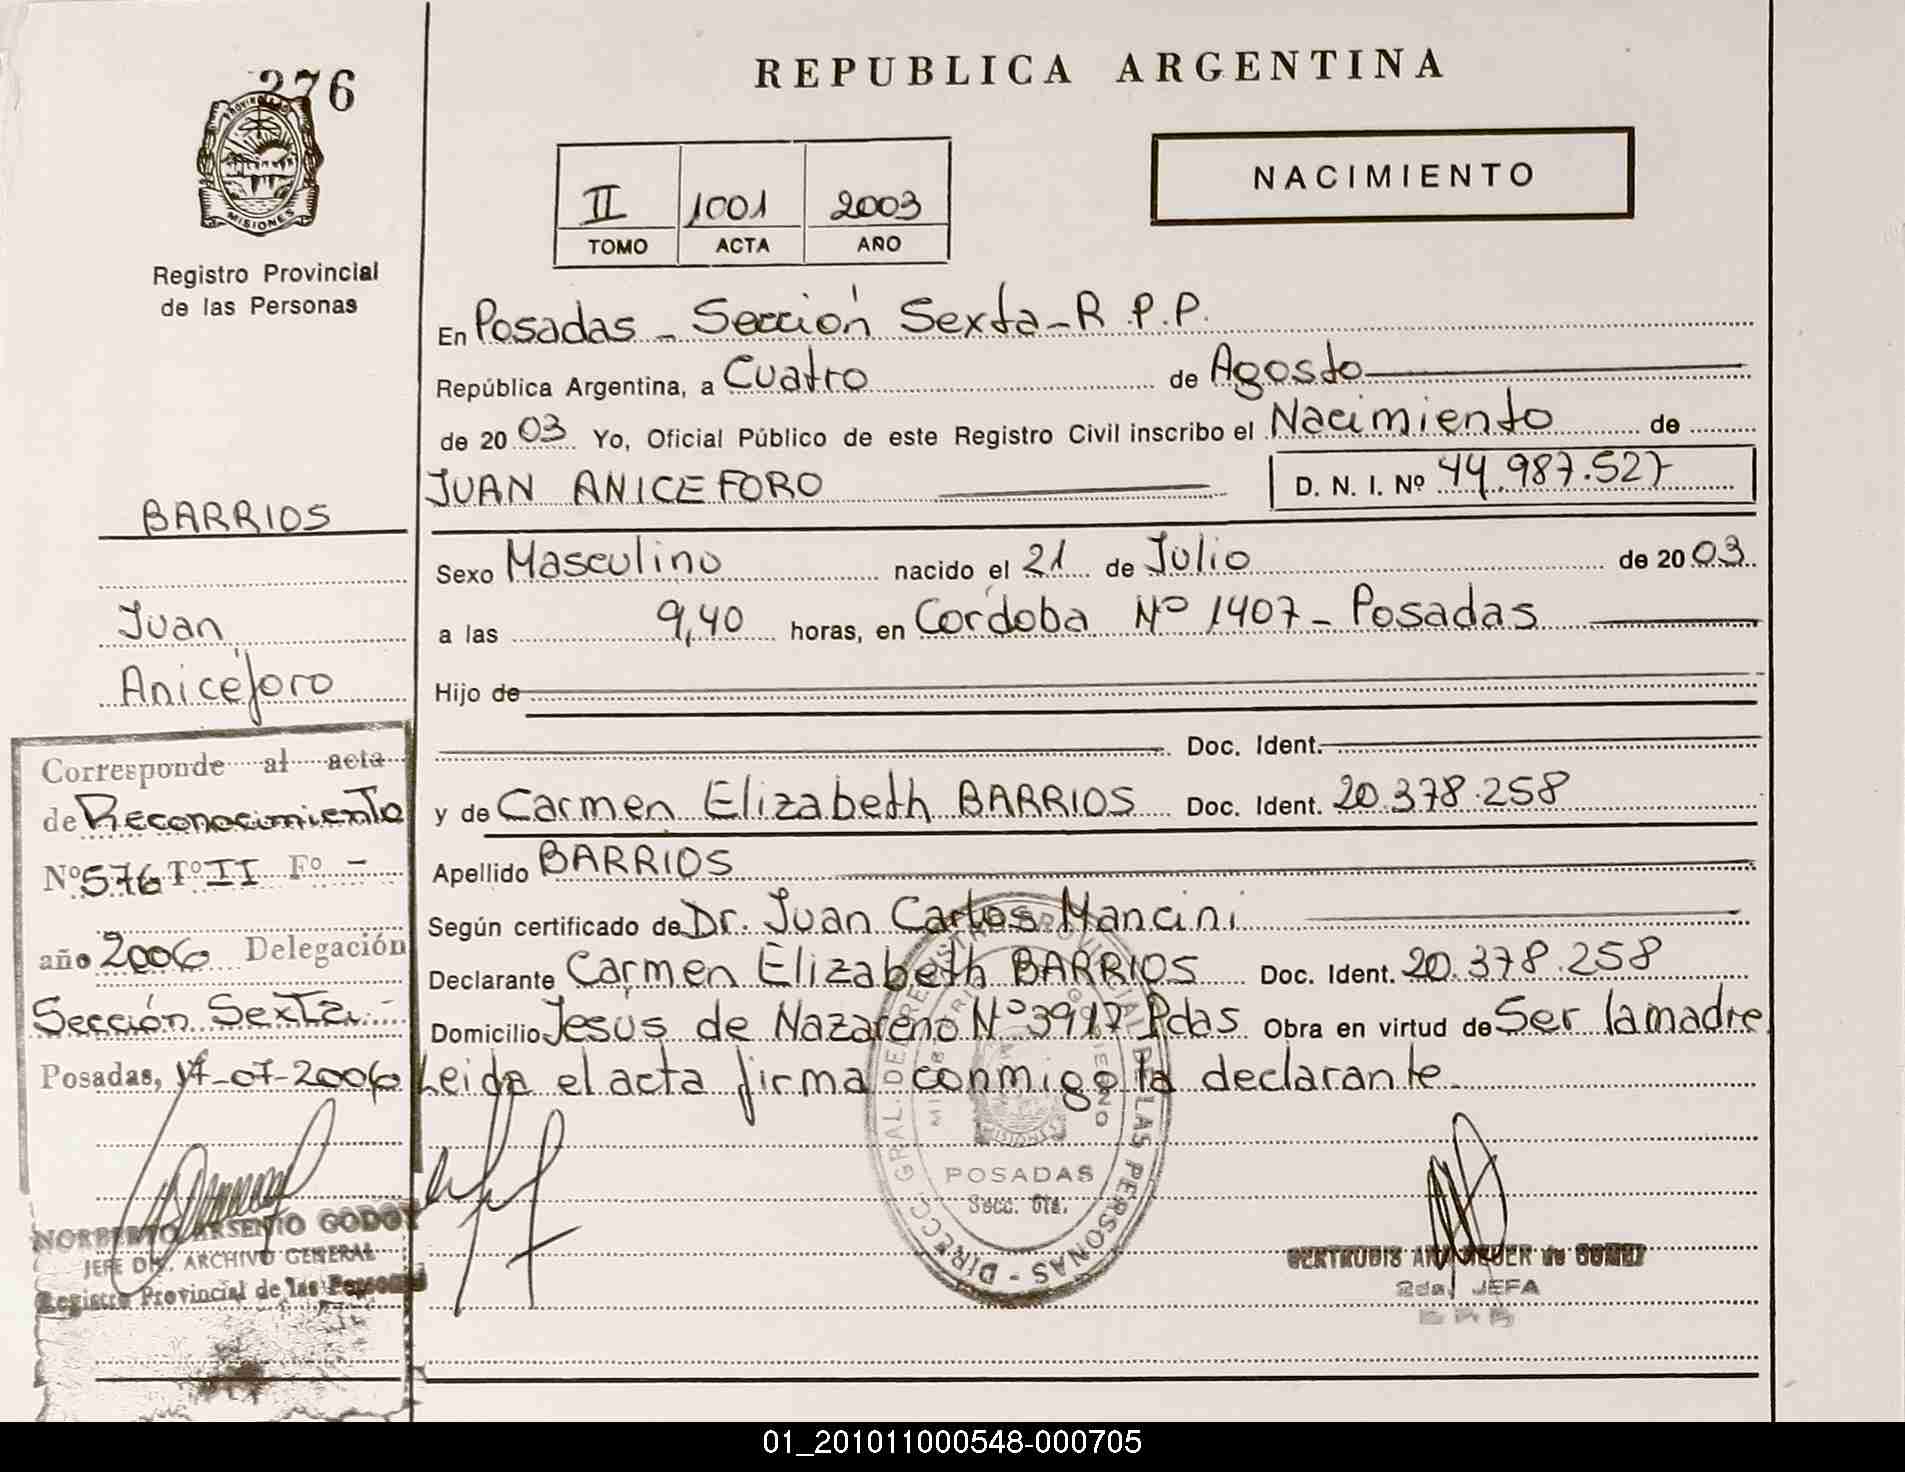 276
PROVINCIA DE
MISIONES
Registro Provincial
de las Personas
REPUBLICA ARGENTINA
II 1001 2003
TOMO ACTA AÑO
NACIMIENTO
En Posadas - Sección Sexta - R.P.P.
República Argentina, a Cuatro de Agosto
de 2003 Yo, Oficial Público de este Registro Civil inscribo el Nacimiento de
JUAN ANICEFORO D. N. I. Nº 44.987.527
BARRIOS
Juan
Aniceforo
Sexo Masculino nacido el 21 de Julio de 2003
a las 9,40 horas, en Córdoba Nº 1407 - Posadas
Hijo de
Doc. Ident.
y de Carmen Elizabeth BARRIOS Doc. Ident. 20.378.258
Apellido BARRIOS
Según certificado de Dr. Juan Carlos Mancini
Declarante Carmen Elizabeth BARRIOS Doc. Ident. 20.378.258
Domicilio Jesús de Nazareno Nº 3917 Pdas Obra en virtud de Ser la madre
Leida el acta firma conmigo la declarante.
Corresponde al acta
de Reconocimiento
Nº 576 Tº II Fº -
año 2006 Delegación
Sección Sexta -
Posadas, 17-07-2006
NORBERTO ARSENIO GODOY
JEFE DIV. ARCHIVO GENERAL
Registro Provincial de las Personas
DIRECC. GRAL. DE REGISTRO PROVINCIAL DE LAS PERSONAS
POSADAS
Secc. 6ta.
2da. JEFA
01_201011000548-000705